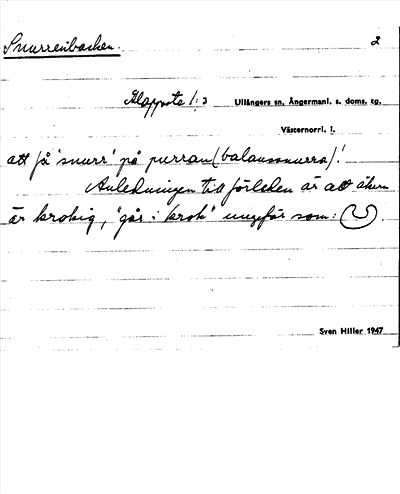 Snurrenbacken. 2
Klappsta 1:3 Ullångers sn. Ångermanl. s. doms. tg.
Västernorrl. l.
att få 'snurr' på purran (balanssnurra)!
Anledningen till förleden är att åkern
är krokig, "går i krok" ungefär som:
Sven Hiller 1947